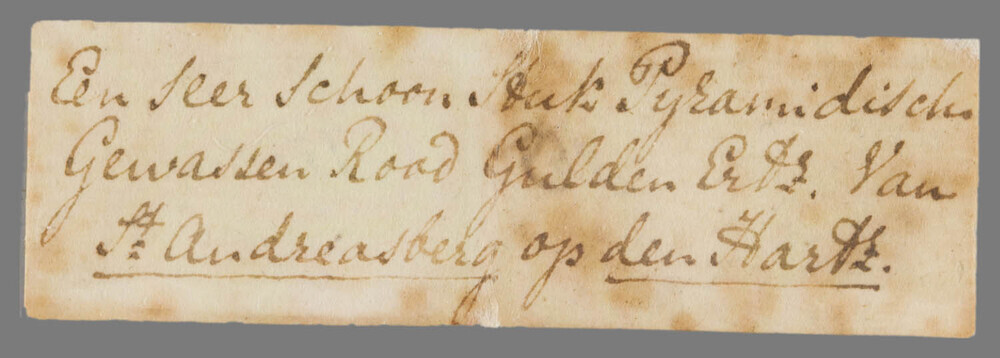 Een seer schoon Stuk Pyramidisch
Gewassen Rood Gulden Ertz. Van
St: Andreasberg op den Hartz.